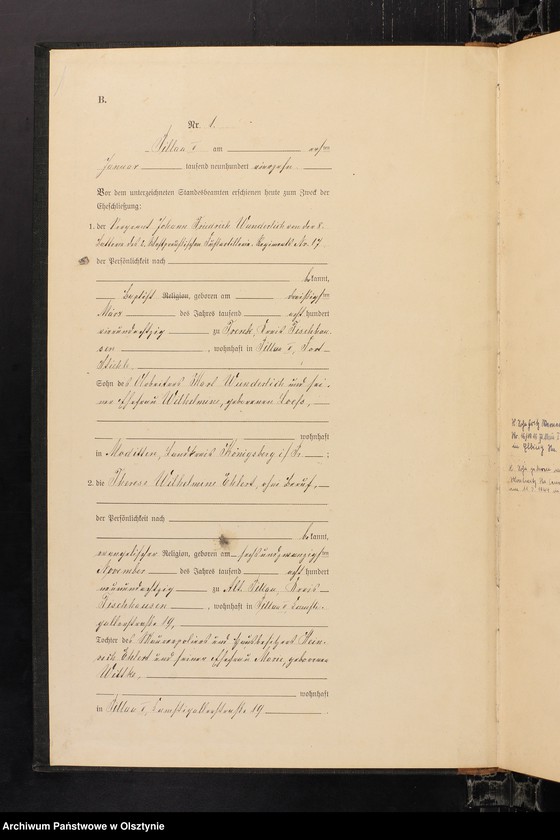 B.
Nr. 1.
Pillau I am zehn
Januar tausend neunhundert vierzehn
Vor dem unterzeichneten Standesbeamten erschienen heute zum Zweck der
Eheschließung:
1. der Sergeant Johann Friedrich Wunderlich von der 8.
Batterie des 2. Westpreußischen Fußartillerie-Regiments Nr. 17
der Persönlichkeit nach
bekannt,
Baptist Religion, geboren am dreißigsten
März des Jahres tausend acht hundert
siebenundachtzig zu Kreis Fischhau-
sen, wohnhaft in Pillau I, Fort
Stiehle.
Sohn des Arbeiters Karl Wunderlich und sei-
ner Ehefrau Wilhelmine, geborenen
wohnhaft
in Moditten, Landkreis Königsberg i/Pr.;
2. die Therese Wilhelmine Ehlert, ohne Beruf,
der Persönlichkeit nach
bekannt,
evangelischer Religion, geboren am sechsundzwanzigsten
November des Jahres tausend acht hundert
neunundachtzig zu Alt Pillau, Kreis
Fischhausen, wohnhaft in Pillau I,
straße 19,
Tochter des und Hausbesitzers Hein-
rich Ehlert und seiner Ehefrau Marie, geborenen
Wittke,
wohnhaft
in Pillau I, straße 19.
Archiwum Państwowe w Olsztynie